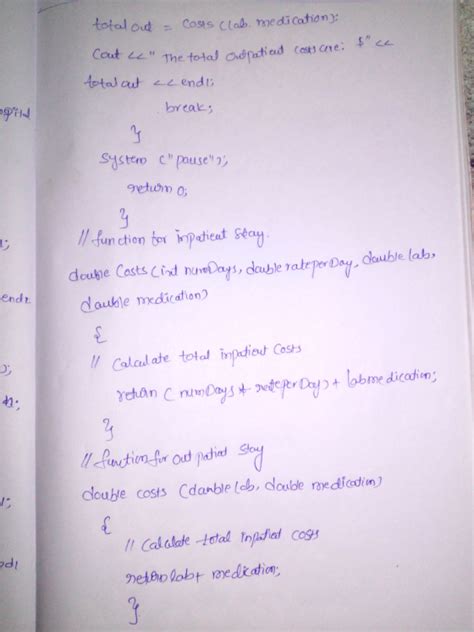 total out = costs (lab, medication);
Cout << " The total outpatient costs are: $" <<
total out << endl;
break;
}
System ("pause");
return 0;
}
// function for inpatient stay.
double Costs (int numDays, double rateperDay, double lab,
double medication)
{
// Calculate total inpatient Costs
return ( numDays * rateperDay) + labmedication;
}
// function for out patient stay
double costs (double lab, double medication)
{
// Calculate total inpatient costs
return lab + medication;
}